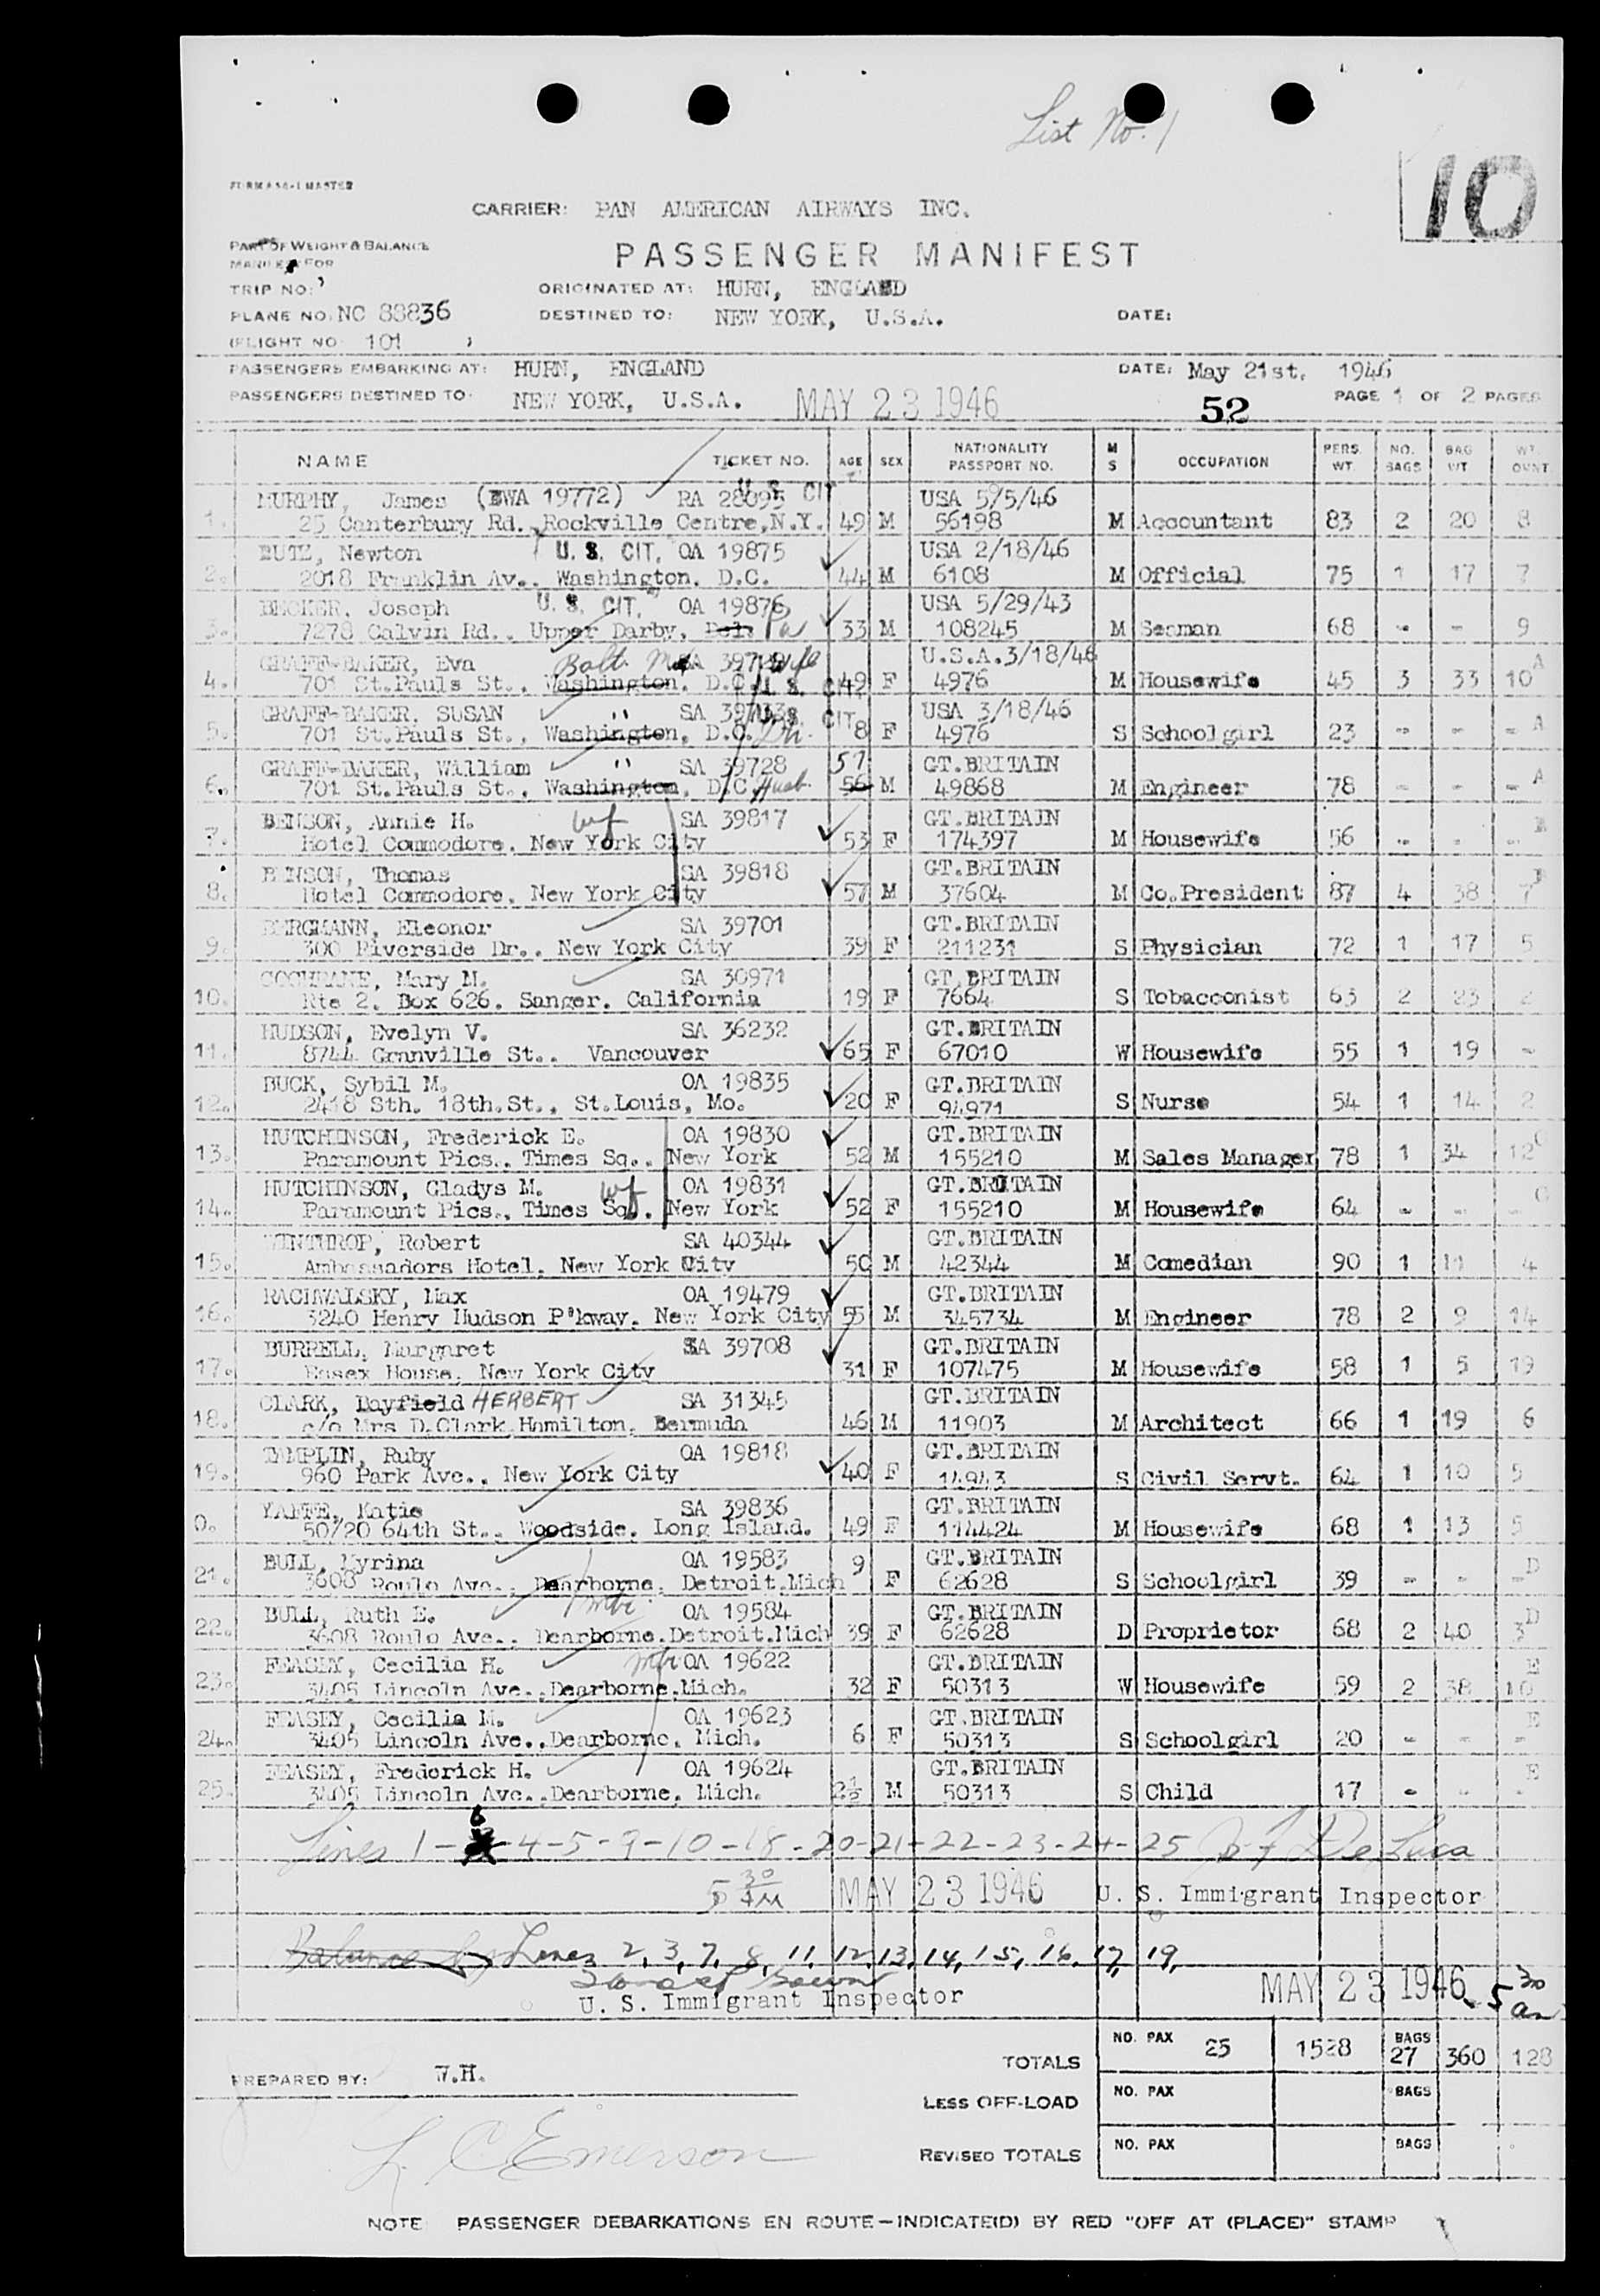 List No. 1
10
FORM A50-1 MASTER
CARRIER: PAN AMERICAN AIRWAYS INC.
PART OF WEIGHT & BALANCE
PASSENGER MANIFEST
TRIP NO:
ORIGINATED AT: HURN, ENGLAND
PLANE NO. NC 88836
DESTINED TO: NEW YORK, U.S.A.
DATE:
(FLIGHT NO 101 )
PASSENGERS EMBARKING AT: HURN, ENGLAND
DATE: May 21st. 1946
PASSENGERS DESTINED TO: NEW YORK, U.S.A. MAY 23 1946
52 PAGE 1 OF 2 PAGES
NAME TICKET NO. AGE SEX NATIONALITY PASSPORT NO. M S OCCUPATION PERS. WT. NO. BAGS BAG WT WT. OVWT
1. MURPHY, James (BWA 19772) RA 28095 U.S. CIT USA 5/5/46
25 Canterbury Rd. Rockville Centre, N.Y. 49 M 56198 M Accountant 83 2 20 8
2. BUTZ, Newton U.S. CIT. OA 19875 USA 2/18/46
2018 Franklin Av.. Washington. D.C. 44 M 6108 M Official 75 1 17 7
3. BECKER, Joseph U.S. CIT. OA 19876 USA 5/29/43
7278 Calvin Rd.. Upper Darby, Del. Pa 33 M 108245 M Seaman 68 - - 9
4. GRAFF-BAKER, Eva Balt. Md SA 39729 wife U.S.A. 3/18/46
701 St.Pauls St., Washington, D.C. U.S. CIT 49 F 4976 M Housewife 45 3 33 10 A
5. GRAFF-BAKER, SUSAN " SA 39733 U.S. CIT USA 3/18/46
701 St.Pauls St., Washington, D.C. 8 F 4976 S Schoolgirl 23 - - - A
6. GRAFF-BAKER, William " SA 39728 57 GT.BRITAIN
701 St.Pauls St., Washington, D.C. Husb. 56 M 49868 M Engineer 78 - - - A
7. BENSON, Annie H. wf SA 39817 GT.BRITAIN
Hotel Commodore. New York City 53 F 174397 M Housewife 56 - - - B
8. BENSON, Thomas SA 39818 GT.BRITAIN
Hotel Commodore. New York City 57 M 37604 M Co.President 87 4 38 7 B
9. BERGMANN, Eleonor SA 39701 GT.BRITAIN
300 Riverside Dr.. New York City 39 F 211231 S Physician 72 1 17 5
10. COCHRANE, Mary M. SA 30971 GT.BRITAIN
Rte 2. Box 626. Sanger. California 19 F 7664 S Tobacconist 63 2 23 2
11. HUDSON, Evelyn V. SA 36232 GT.BRITAIN
8744 Granville St.. Vancouver 65 F 67010 W Housewife 55 1 19 -
12. BUCK, Sybil M. OA 19835 GT.BRITAIN
2418 Sth. 18th.St., St.Louis, Mo. 20 F 94971 S Nurse 54 1 14 2
13. HUTCHINSON, Frederick E. OA 19830 GT.BRITAIN
Paramount Pics., Times Sq.. New York 52 M 155210 M Sales Manager 78 1 34 12 C
14. HUTCHINSON, Gladys M. wf OA 19831 GT.BRITAIN
Paramount Pics., Times Sq.. New York 52 F 155210 M Housewife 64 - - - C
15. WINTHROP, Robert SA 40344 GT.BRITAIN
Ambassadors Hotel. New York City 50 M 42344 M Comedian 90 1 11 4
16. RACHWALSKY, Max OA 19479 GT.BRITAIN
3240 Henry Hudson P'kway. New York City 55 M 345734 M Engineer 78 2 9 14
17. BURRELL, Margaret SA 39708 GT.BRITAIN
Essex House. New York City 31 F 107475 M Housewife 58 1 5 19
18. CLARK, Bayfield HERBERT SA 31345 GT.BRITAIN
c/o Mrs D.Clark.Hamilton. Bermuda 46 M 11903 M Architect 66 1 19 6
19. TAMPLIN, Ruby OA 19818 GT.BRITAIN
960 Park Ave.. New York City 40 F 14943 S Civil Servt. 64 1 10 5
0. YAFFE, Katie SA 39836 GT.BRITAIN
50/20 64th St.. Woodside. Long Island. 49 F 114424 M Housewife 68 1 13 5
21. BULL, Myrina OA 19583 9 GT.BRITAIN
3608 Roulo Ave.. Dearborne. Detroit.Mich F 62628 S Schoolgirl 39 - - - D
22. BULL, Ruth E. mtr OA 19584 GT.BRITAIN
3608 Roulo Ave.. Dearborne.Detroit.Mich 39 F 62628 D Proprietor 68 2 40 3 D
23. FEASEY, Cecilia H. mtr OA 19622 GT.BRITAIN
3405 Lincoln Ave..Dearborne.Mich. 32 F 50313 W Housewife 59 2 38 10 E
24. FEASEY, Cecilia M. OA 19623 GT.BRITAIN
3405 Lincoln Ave..Dearborne. Mich. 6 F 50313 S Schoolgirl 20 - - - E
25. FEASEY, Frederick H. OA 19624 GT.BRITAIN
3405 Lincoln Ave..Dearborne. Mich. 2½ M 50313 S Child 17 - - - E
Lines 1 - 6 - 4 - 5 - 9 - 10 - 18 - 20 - 21 - 22 - 23 - 24 - 25 De Luca
5 30 AM MAY 23 1946 U. S. Immigrant Inspector
Balance by Lines 2, 3, 7, 8, 11, 12, 13, 14, 15, 16, 17, 19,
U. S. Immigrant Inspector MAY 23 1946 5 30 am
TOTALS NO. PAX 25 1528 BAGS 27 360 128
PREPARED BY: W.H.
LESS OFF-LOAD NO. PAX BAGS
L. C. Emerson
REVISED TOTALS NO. PAX BAGS
NOTE PASSENGER DEBARKATIONS EN ROUTE—INDICATE(D) BY RED "OFF AT (PLACE)" STAMP